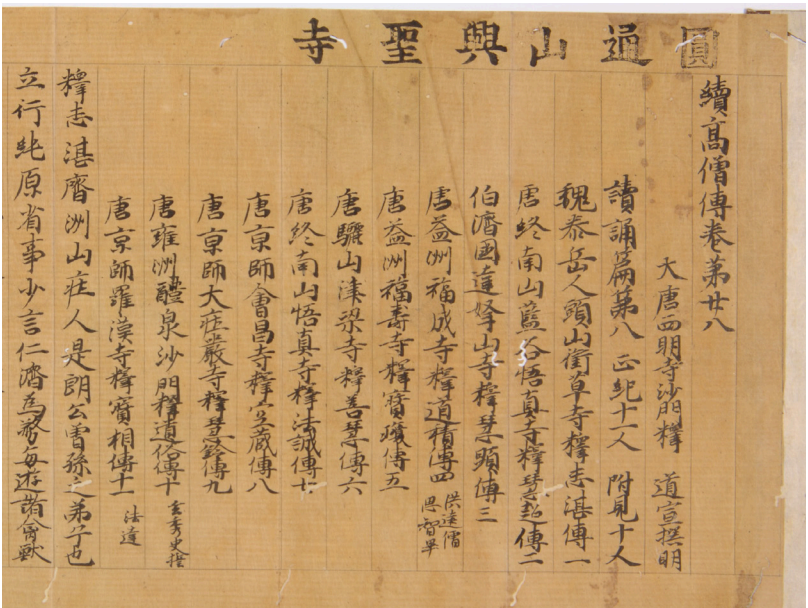 圓通山興聖寺
續高僧傳卷第廿八
大唐西明寺沙門釋 道宣撰 明
讀誦篇第八 正紀十一人 附見十人
魏泰岳人頭山銜草寺釋志湛傳一
唐終南山藍谷悟真寺釋慧超傳二
伯濟國達拏山寺釋慧顯傳三
唐益洲福成寺釋道積傳四 洪遠 僧恩 智曅
唐益洲福壽寺釋寶瓊傳五
唐驪山津梁寺釋善慧傳六
唐終南山悟真寺釋法誠傳七
唐京師會昌寺釋空藏傳八
唐京師大莊嚴寺釋慧銓傳九
唐雍洲醴泉沙門釋道俗傳十 玄秀 史擔
唐京師羅漢寺釋寶相傳十一 法達
釋志湛齊洲山莊人是朗公曾孫之弟子也
立行純原省事少言仁濟為務每遊諸禽獸